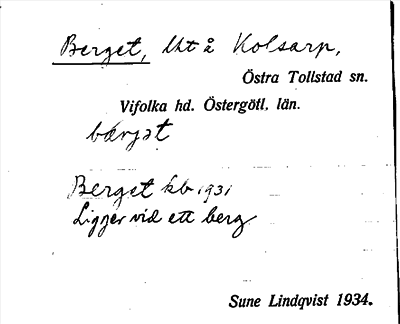 Berget, Uht å Kolsarp,
Östra Tollstad sn.
Vifolka hd. Östergötl. län.
bærjət
Berget kb 1931
Ligger vid ett berg
Sune Lindqvist 1934.